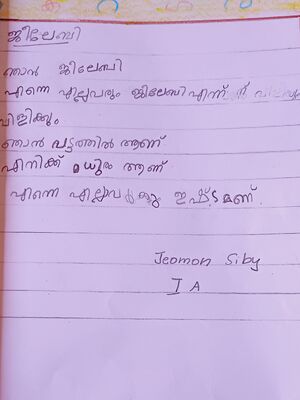 ജിലേബി
ഞാൻ ജിലേബി
എന്നെ എല്ലവരും ജിലേബി എന്ന്
വിളിക്കും
ഞാൻ വട്ടത്തിൽ ആണ്
എനിക്ക് മധുരം ആണ്
എന്നെ എല്ലാവർക്കും ഇഷ്ടമണ്.
Jeomon Siby
I A